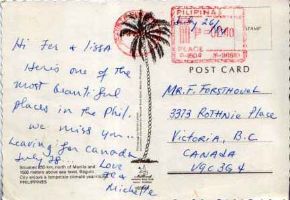 Hi Fer & lissa
Here's one of the
most beautiful
places in the Phil.
we miss you...
Leaving for Canada
July 28
Love
Michelle
Situated 250 km. north of Manila and
1500 meters above sea level, Baguio
City enjoys a temperate climate year-round.
PHILIPPINES
PILIPINAS
July 26/
PLACE
POST CARD
MR. F. FORSTHOVAL
3373 Rothnie Place
Victoria, B.C
CANADA
V9C 3G4